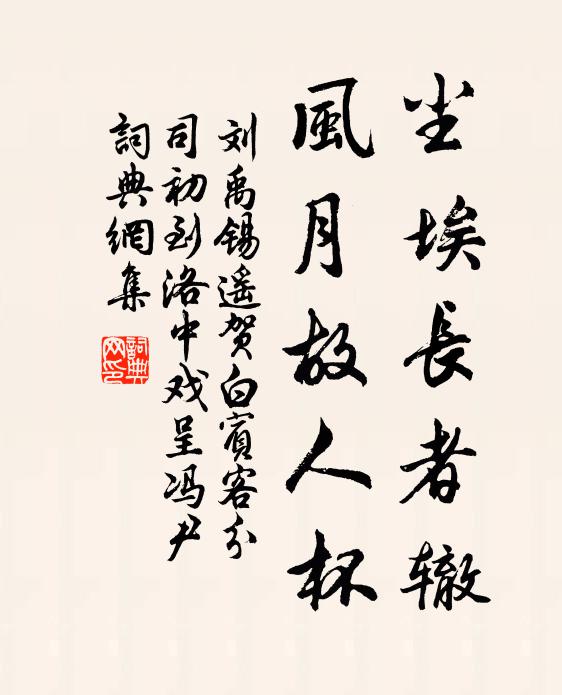 尘埃長者辙
風月故人杯
刘禹锡遥贺白賓客分
司初到洛中戏呈冯尹
詞典網集
詞典
网印